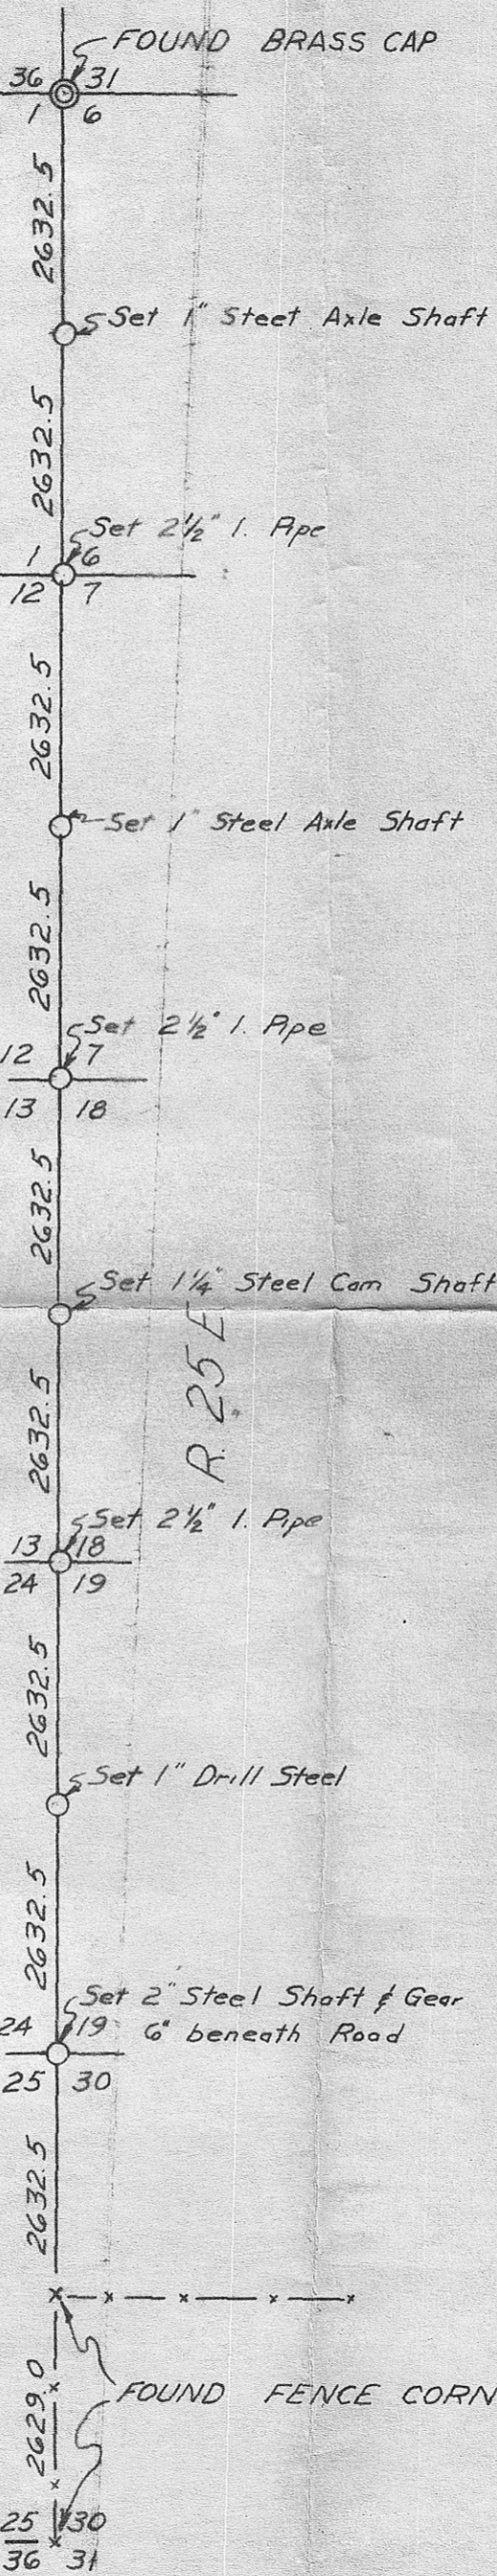 FOUND BRASS CAP
36 31
1 6
2632.5
Set 1" Steet Axle Shaft
2632.5
Set 2½" I. Pipe
1 6
12 7
2632.5
Set 1" Steel Axle Shaft
2632.5
Set 2½" I. Pipe
12 7
13 18
2632.5
Set 1¼" Steel Cam Shaft
R. 25 E
2632.5
Set 2½" I. Pipe
13 18
24 19
2632.5
Set 1" Drill Steel
2632.5
Set 2" Steel Shaft & Gear
24 19 6" beneath Road
25 30
2632.5
2629.0
FOUND FENCE CORN
25 30
36 31